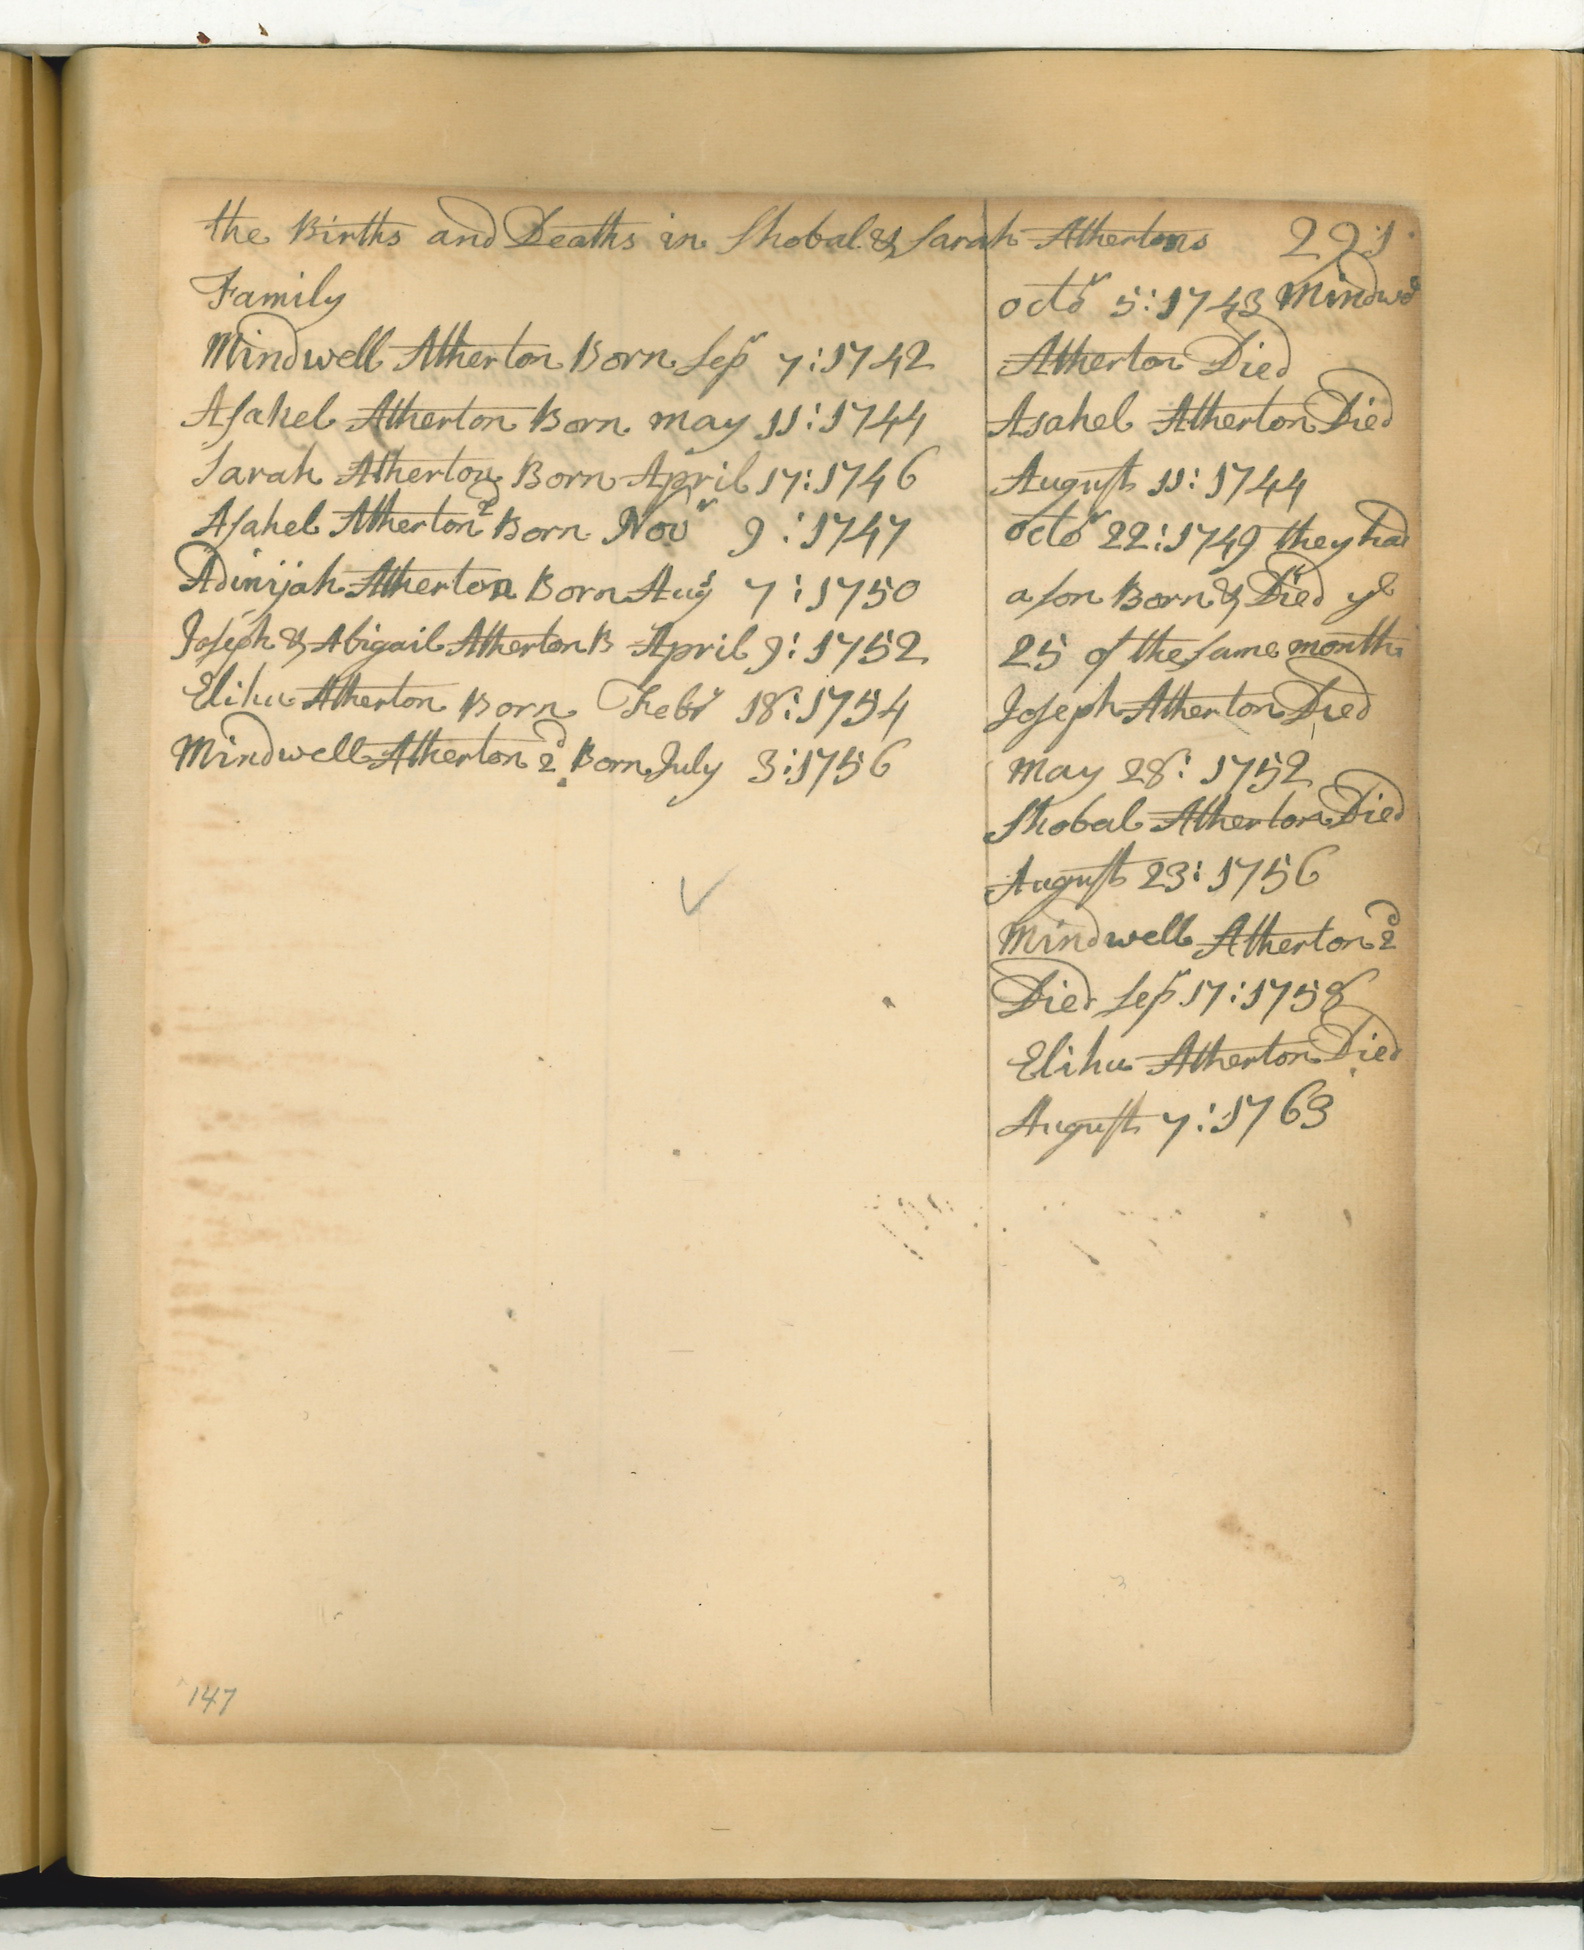 the Births and Deaths in Shobal & Sarah Athertons 221
Family
Mindwell Atherton Born Sepr 7:1742
Asahel Atherton Born may 11:1744
Sarah Atherton Born April 17:1746
Asahel Atherton 2d Born Novr 9:1747
Adinijah Atherton Born Augt 7:1750
Joseph & Abigail Atherton B April 9:1752
Elihu Atherton Born Febr 18:1754
Mindwell Atherton 2d Born July 3:1756
octor 5:1743 Mindwd
Atherton Died
Asahel Atherton Died
August 11:1744
octor 22:1749 they had
a son Born & Died ye
25 of the same month
Joseph Atherton Died
may 28:1752
Shobal Atherton Died
August 23:1756
Mindwell Atherton 2d
Died Sepr 17:1758
Elihu Atherton Died
August 7:1763
147